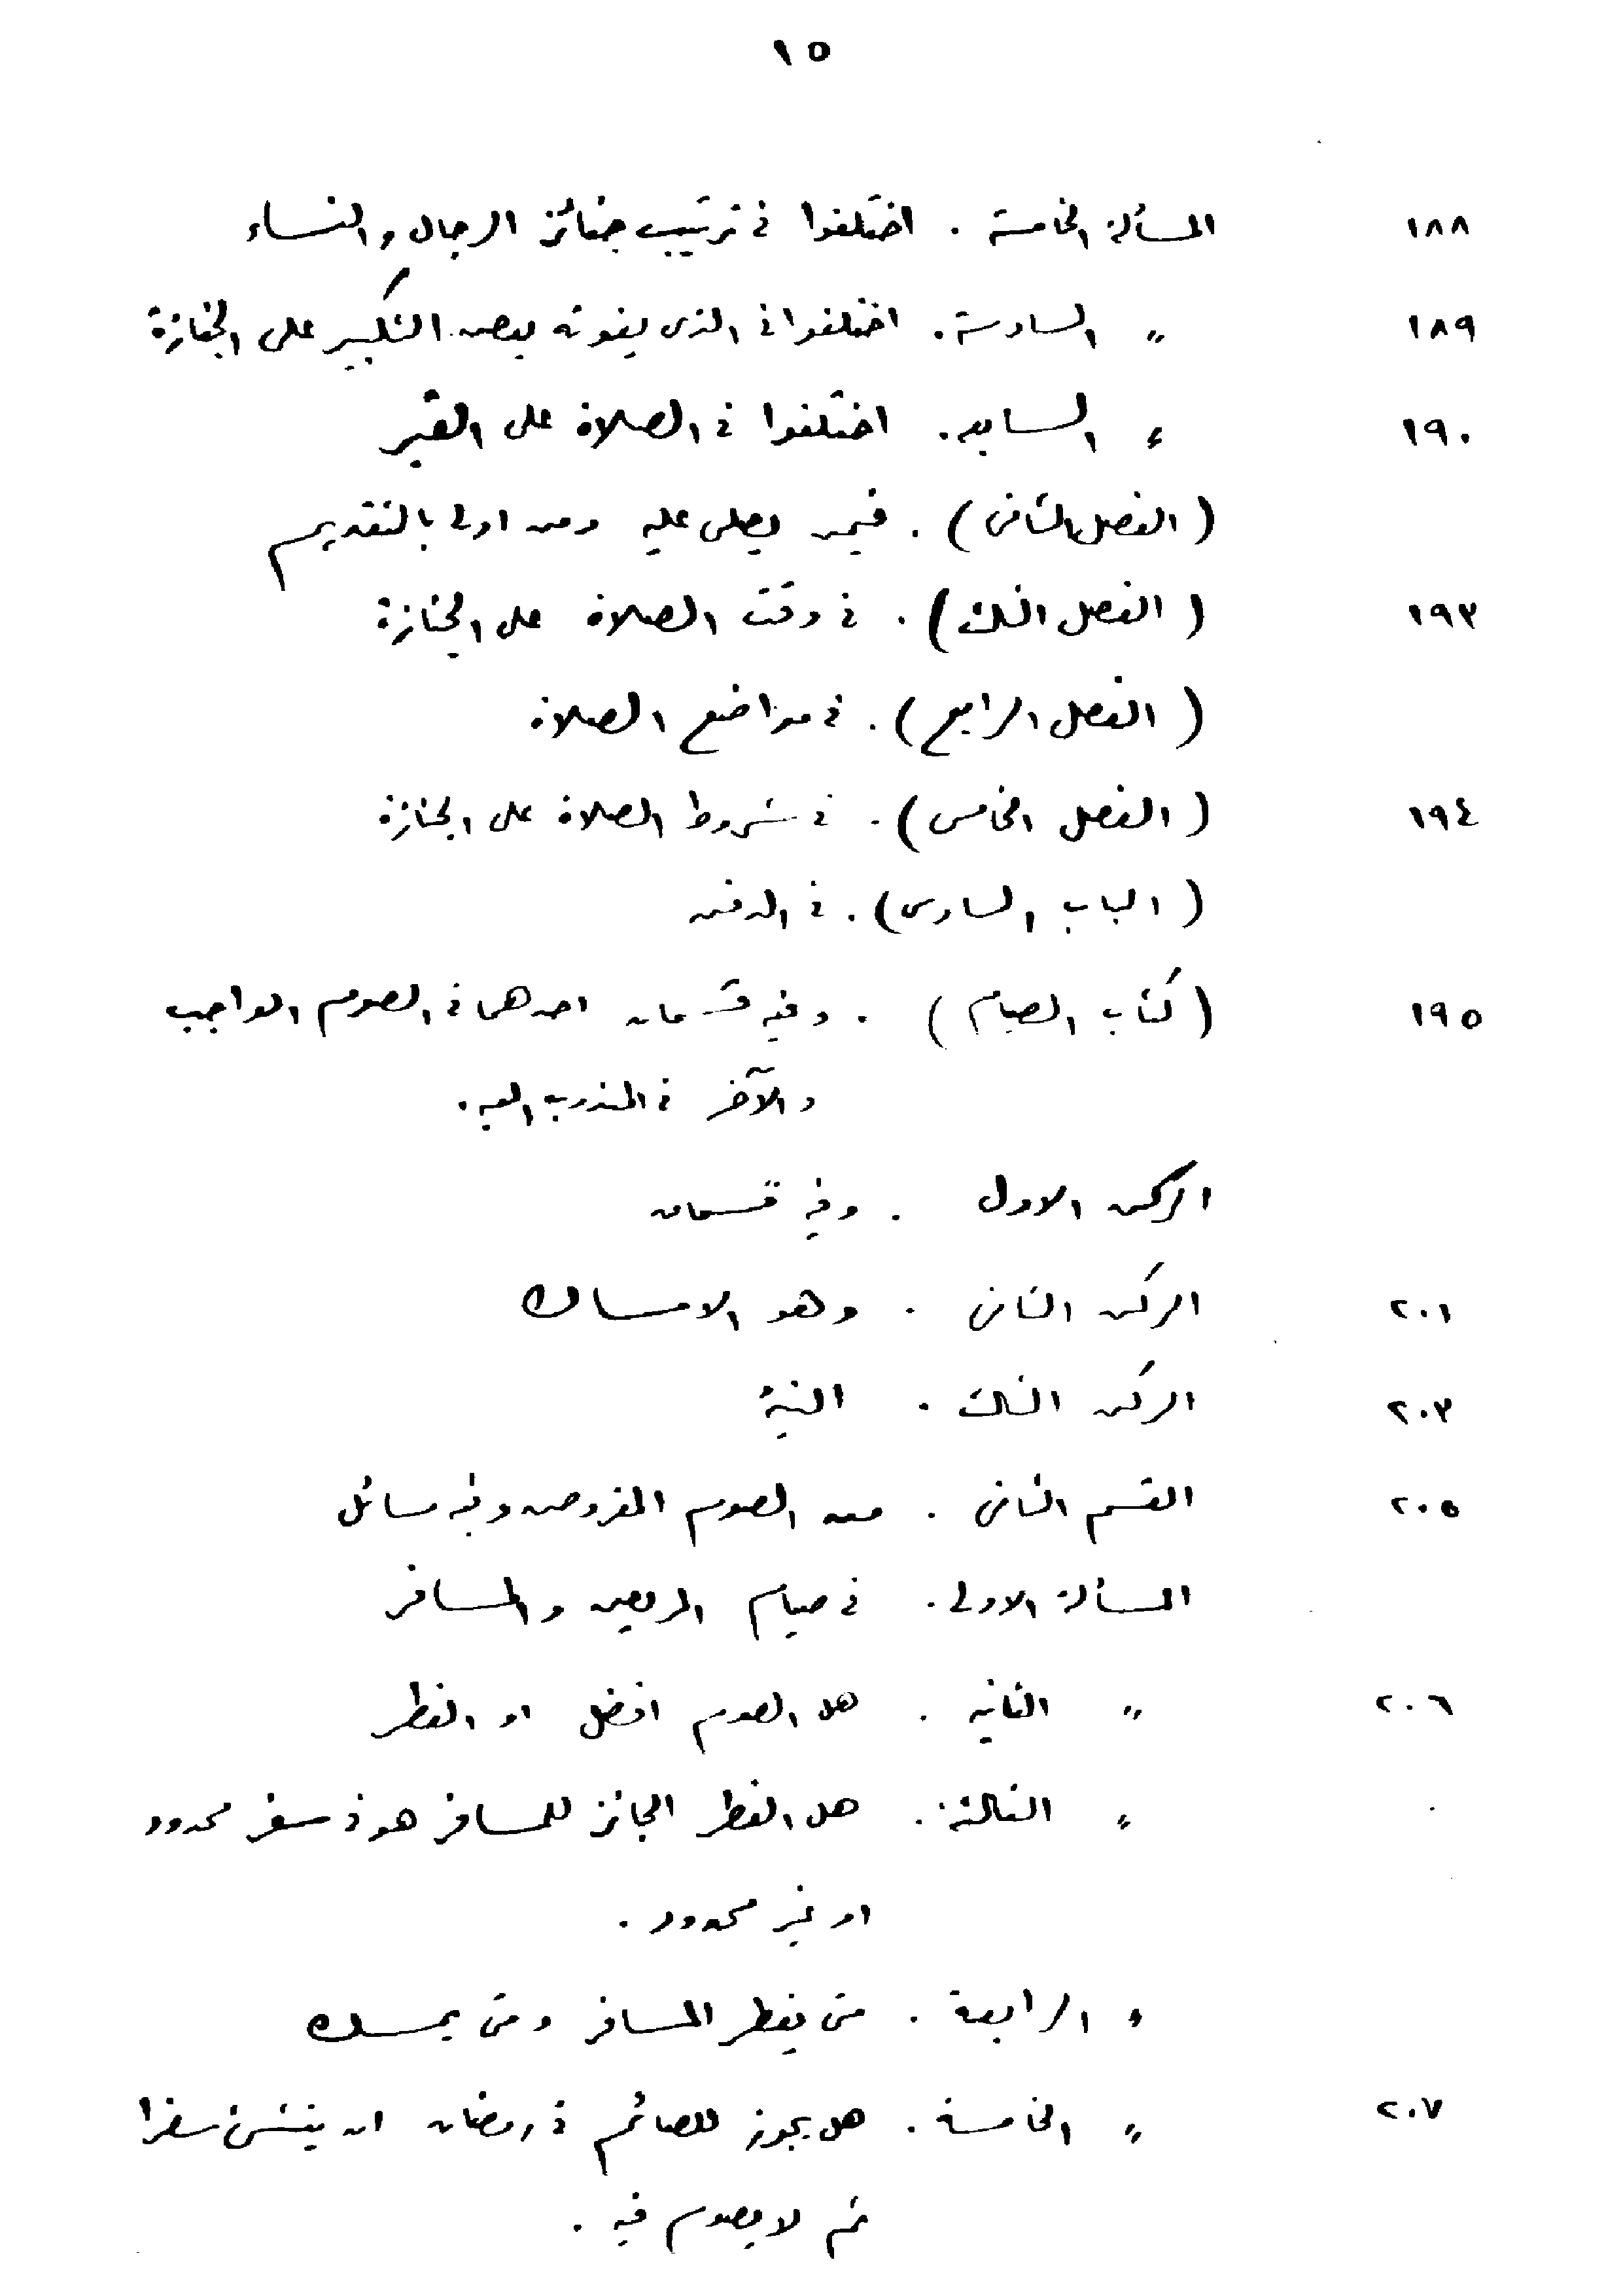 ١٥
١٨٨ المسألة الخامسة . اختلفوا في ترتيب جنائز الرجال والنساء
١٨٩ " السادسة . اختلفوا في الذى يفوته بعض التكبير على الجنازة
١٩٠ " السابعة . اختلفوا في الصلاة على القبر
( الفصل الثانى ) . فيمن يصلى عليه ومن اولى بالتقديم
١٩٣ ( الفصل الثالث ) . في وقت الصلاة على الجنازة
( الفصل الرابع ) . في مواضع الصلاة
١٩٤ ( الفصل الخامس ) . في شروط الصلاة على الجنازة
( الباب السادس ) . في الدفن
١٩٥ ( كتاب الصيام ) . وفيه قسمان احدهما في الصوم الواجب
والآخر في المندوب اليه .
الركن الاول . وفيه قسمان
٢٠١ الركن الثانى . وهو الامساك
٢٠٣ الركن الثالث . النية
٢٠٥ القسم الثانى . من الصوم المفروض وفيه مسائل
المسألة الاولى . في صيام المريض والمسافر
٢٠٦ " الثانيه . هل الصوم افضل او الفطر
" الثالثة . هل الفطر الجائز للمسافر هو في سفر محدود
او غير محدود .
" الرابعة . متى يفطر المسافر ومتى يمسك
٢٠٧ " الخامسة . هل يجوز للصائم في رمضان ان ينشئ سفرا
ثم لا يصوم فيه .